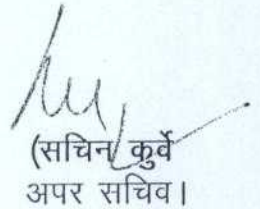 (सचिन कुर्वे
अपर सचिव।